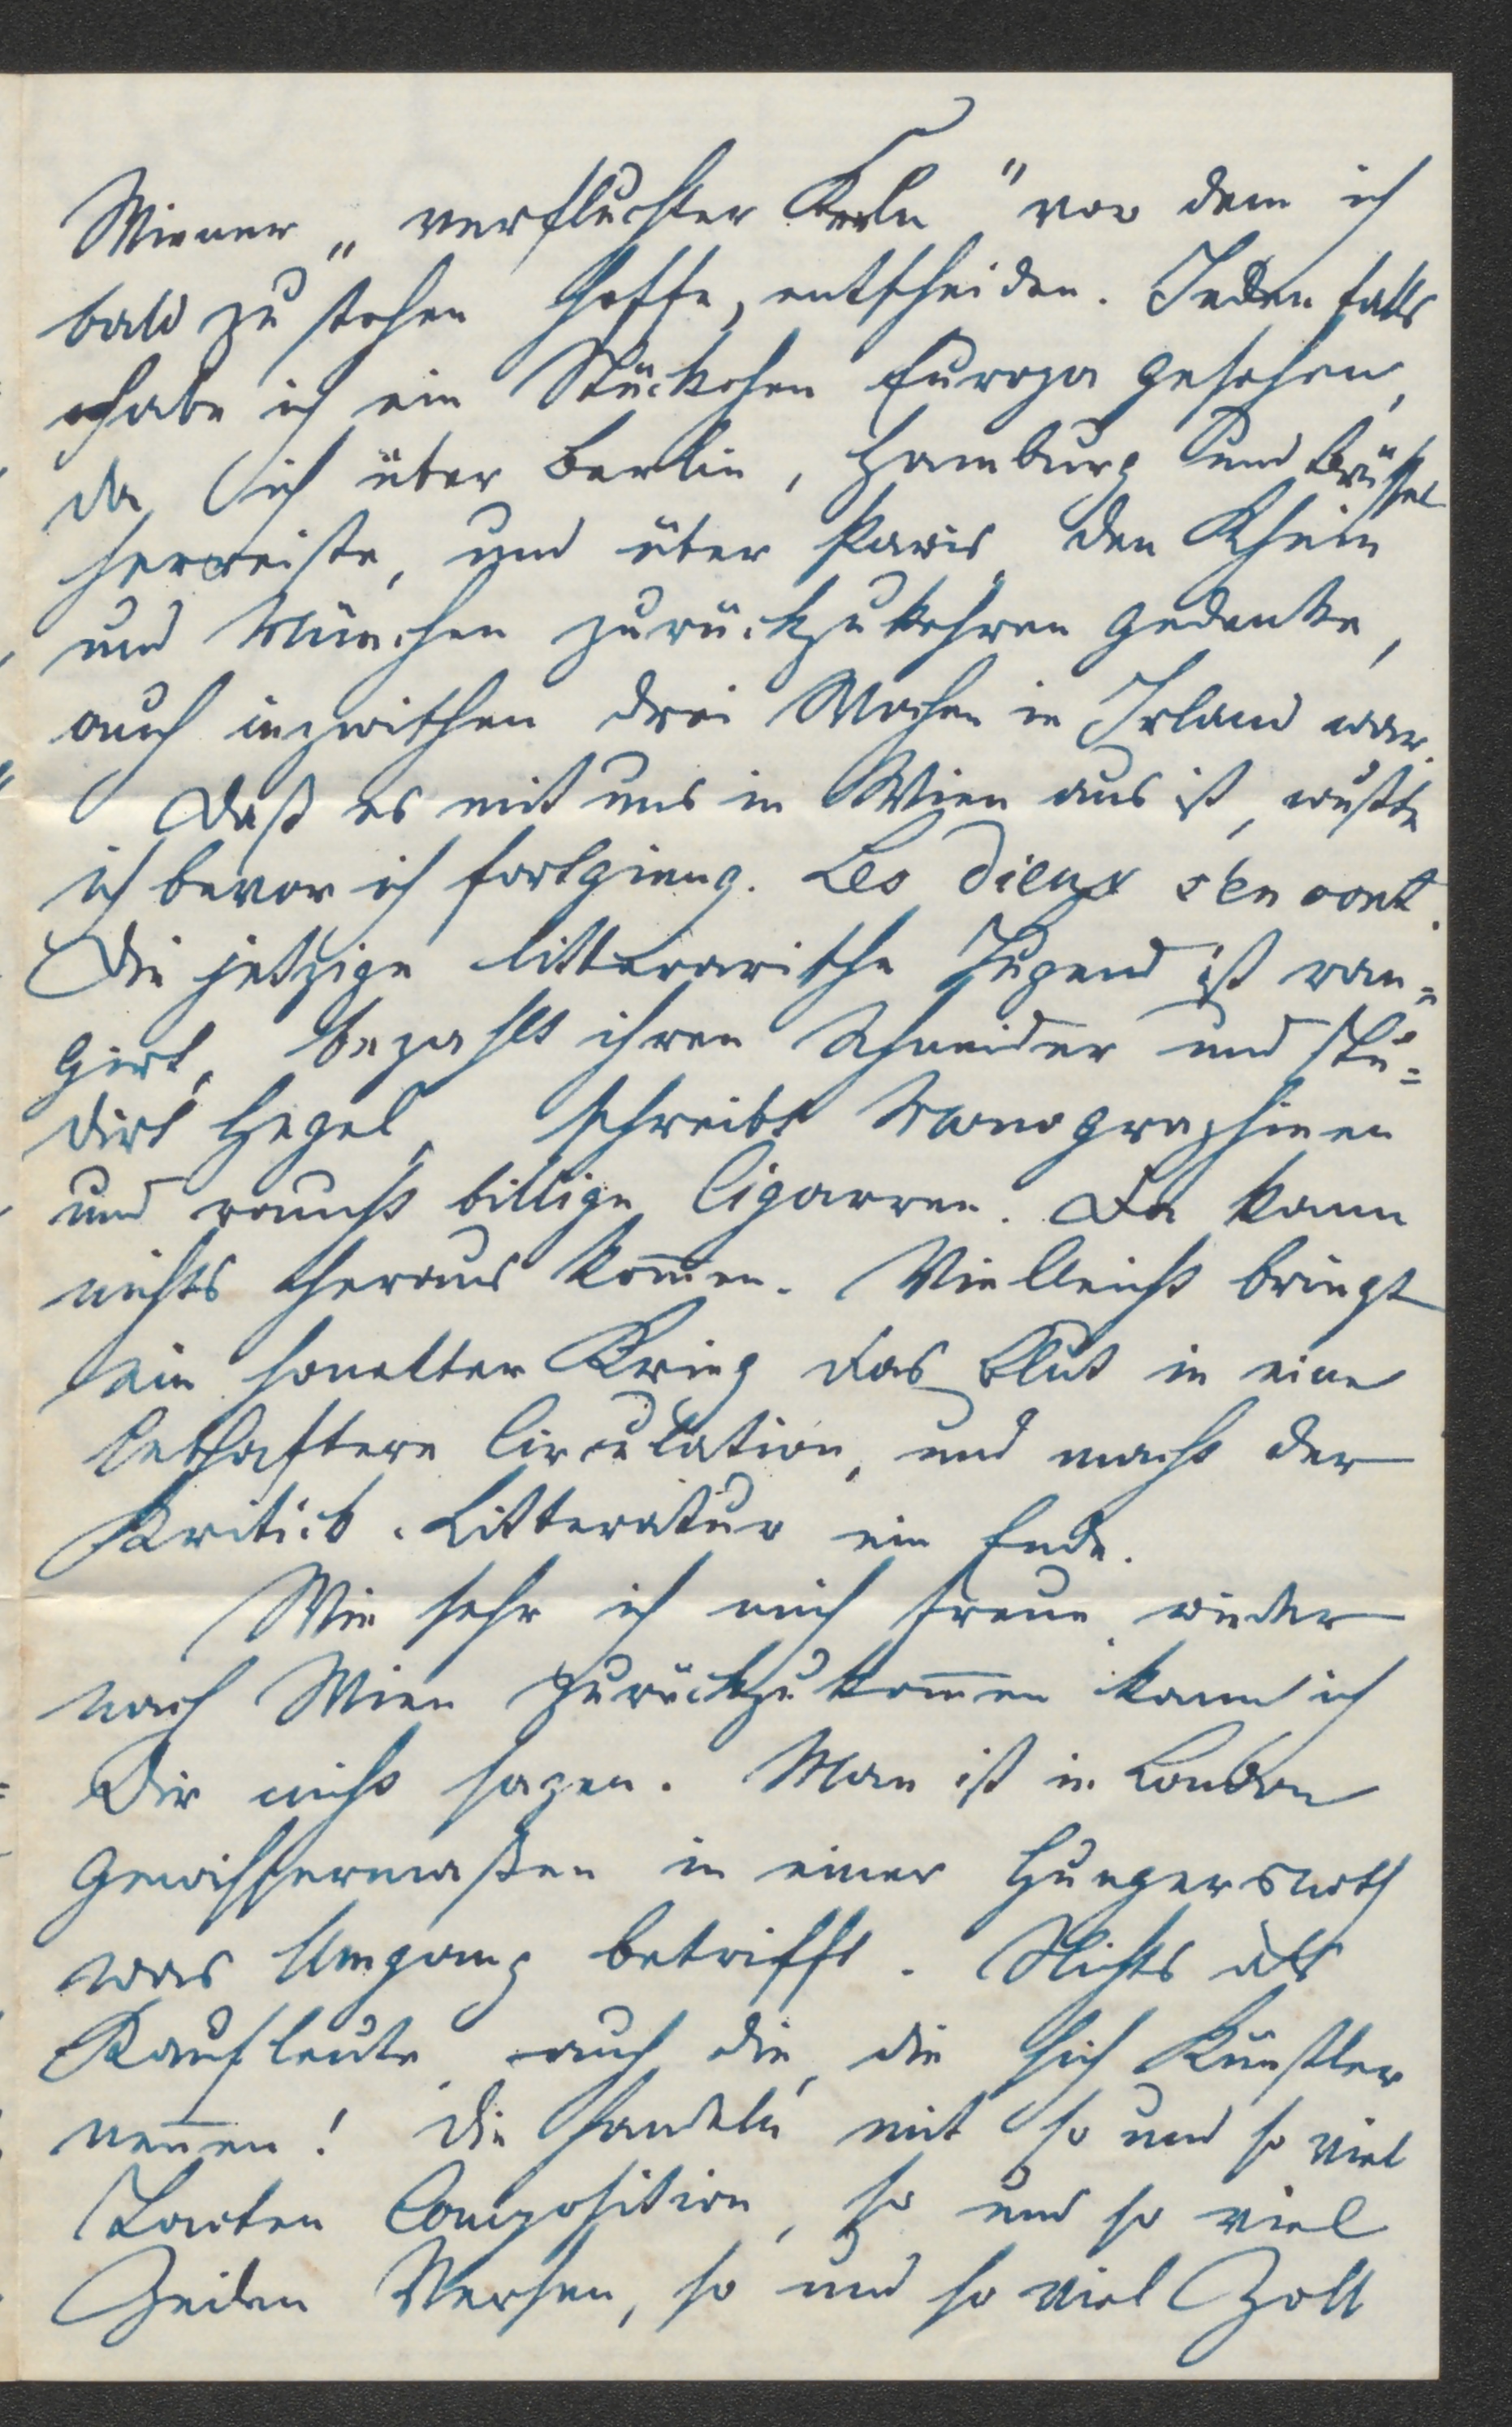 Wiener „verfluchter Kerln" vor dem ich
bald zu stehen hoffe, entscheiden. Jedenfalls
habe ich ein Stückchen Europa gesehen,
da ich über Berlin, Hamburg und Brüssel
herreiste, und über Paris, den Rhein
und München zurückzukehren gedenke,
auch inzwischen drei Wochen in Irland war.
Daß es mit uns in Wien aus ist, wußte
ich bevor ich fortgieng. Les dieux s'en vont.
Die jetzige litterarische Jugend ist ran=
girt, bezahlt ihren Schneider und stu=
dirt Hegel, schreibt Monographieen
und raucht billige Cigarren. Da kann
nichts heraus kom̅en. Vielleicht bringt
ein honetter Krieg das Blut in eine
lebhaftere Circulation, und macht der
Kritick-Litteratur ein Ende.
Wie sehr ich mich freue, wieder
nach Wien zurückzukom̅en kann ich
Dir nicht sagen. Man ist in London
gewissermaßen in einer Hungersnoth
was Umgang betrifft. Nichts als
Kaufleute, auch die, die sich Künstler
nen̅en! Die handeln mit so und so viel
Tacten Composition, so und so viel
Zeilen Versen, so und so viel Zoll